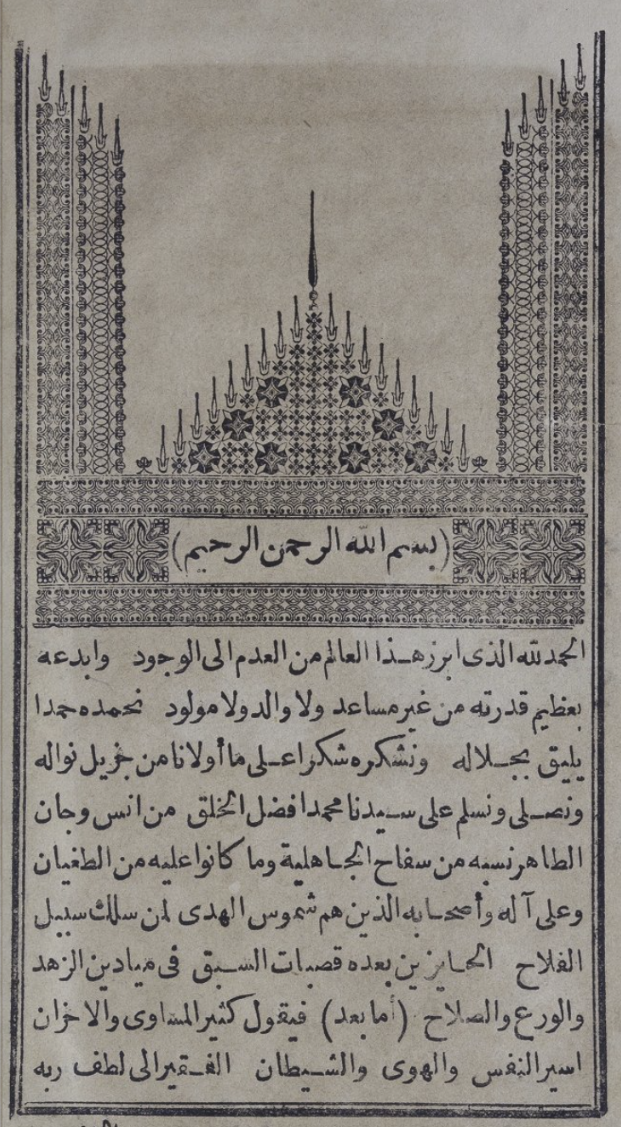 (بسم الله الرحمن الرحيم)
الحمد لله الذى ابرز هذا العالم من العدم الى الوجود وابدعه
بعظيم قدرته من غير مساعد ولا والد ولا مولود نحمده حمدا
يليق بجلاله ونشكره شكرا على ما أولانا من خزيل نواله
ونصلى ونسلم على سيدنا محمد افضل الخلق من انس وجان
الطاهر نسبه من سفاح الجاهلية وما كانوا عليه من الطغيان
وعلى آله وأصحابه الذين هم شموس الهدى لمن سلك سبيل
الفلاح الحايزين بعده قصبات السبق فى ميادين الزهد
والورع والصلاح (أما بعد) فيقول كثير المساوى والاخزان
اسير النفس والهوى والشيطان الفقير الى لطف ربه